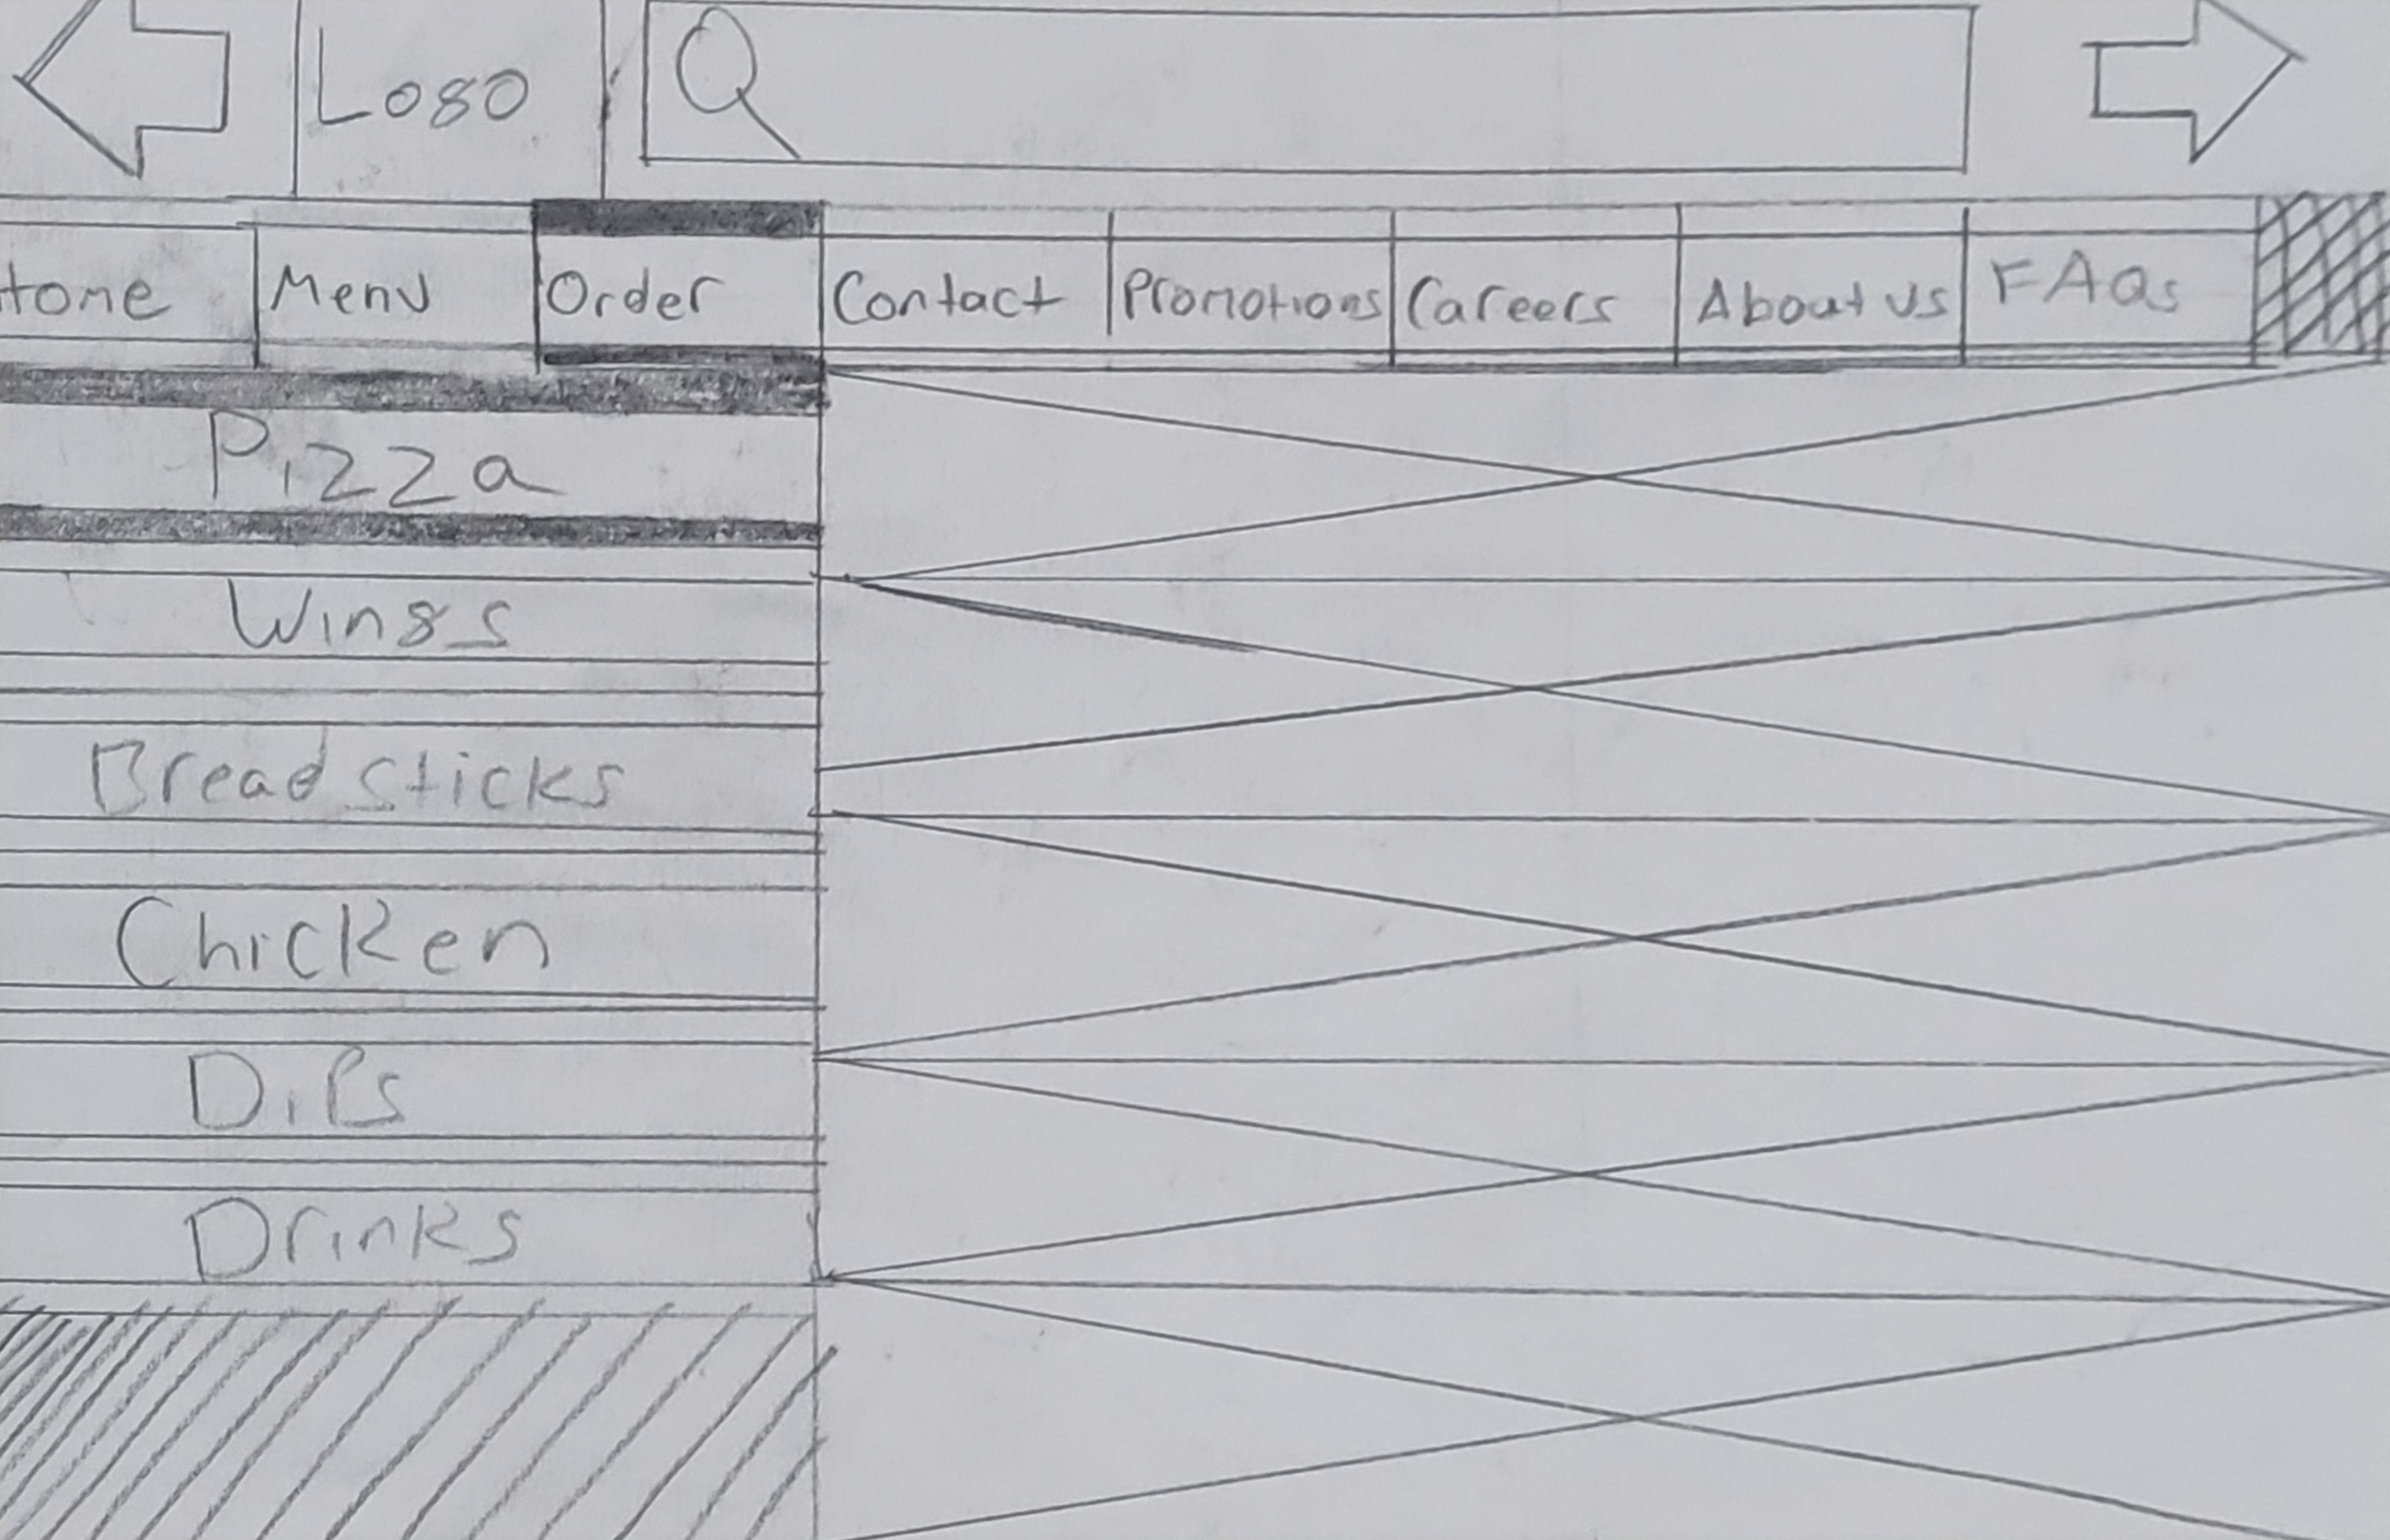 Logo
Home Menu Order Contact Promotions Careers About us FAQs
Pizza
Wings
Bread sticks
Chicken
Dips
Drinks